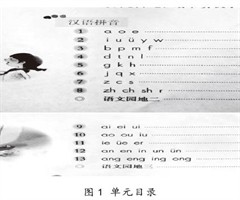 汉语拼音
1 a o e
2 i u ü y w
3 b p m f
4 d t n l
5 g k h
6 j q x
7 z c s
8 zh ch sh r
语文园地二
9 ai ei ui
10 ao ou iu
11 ie üe er
12 an en in un ün
13 ang eng ing ong
图1 单元目录